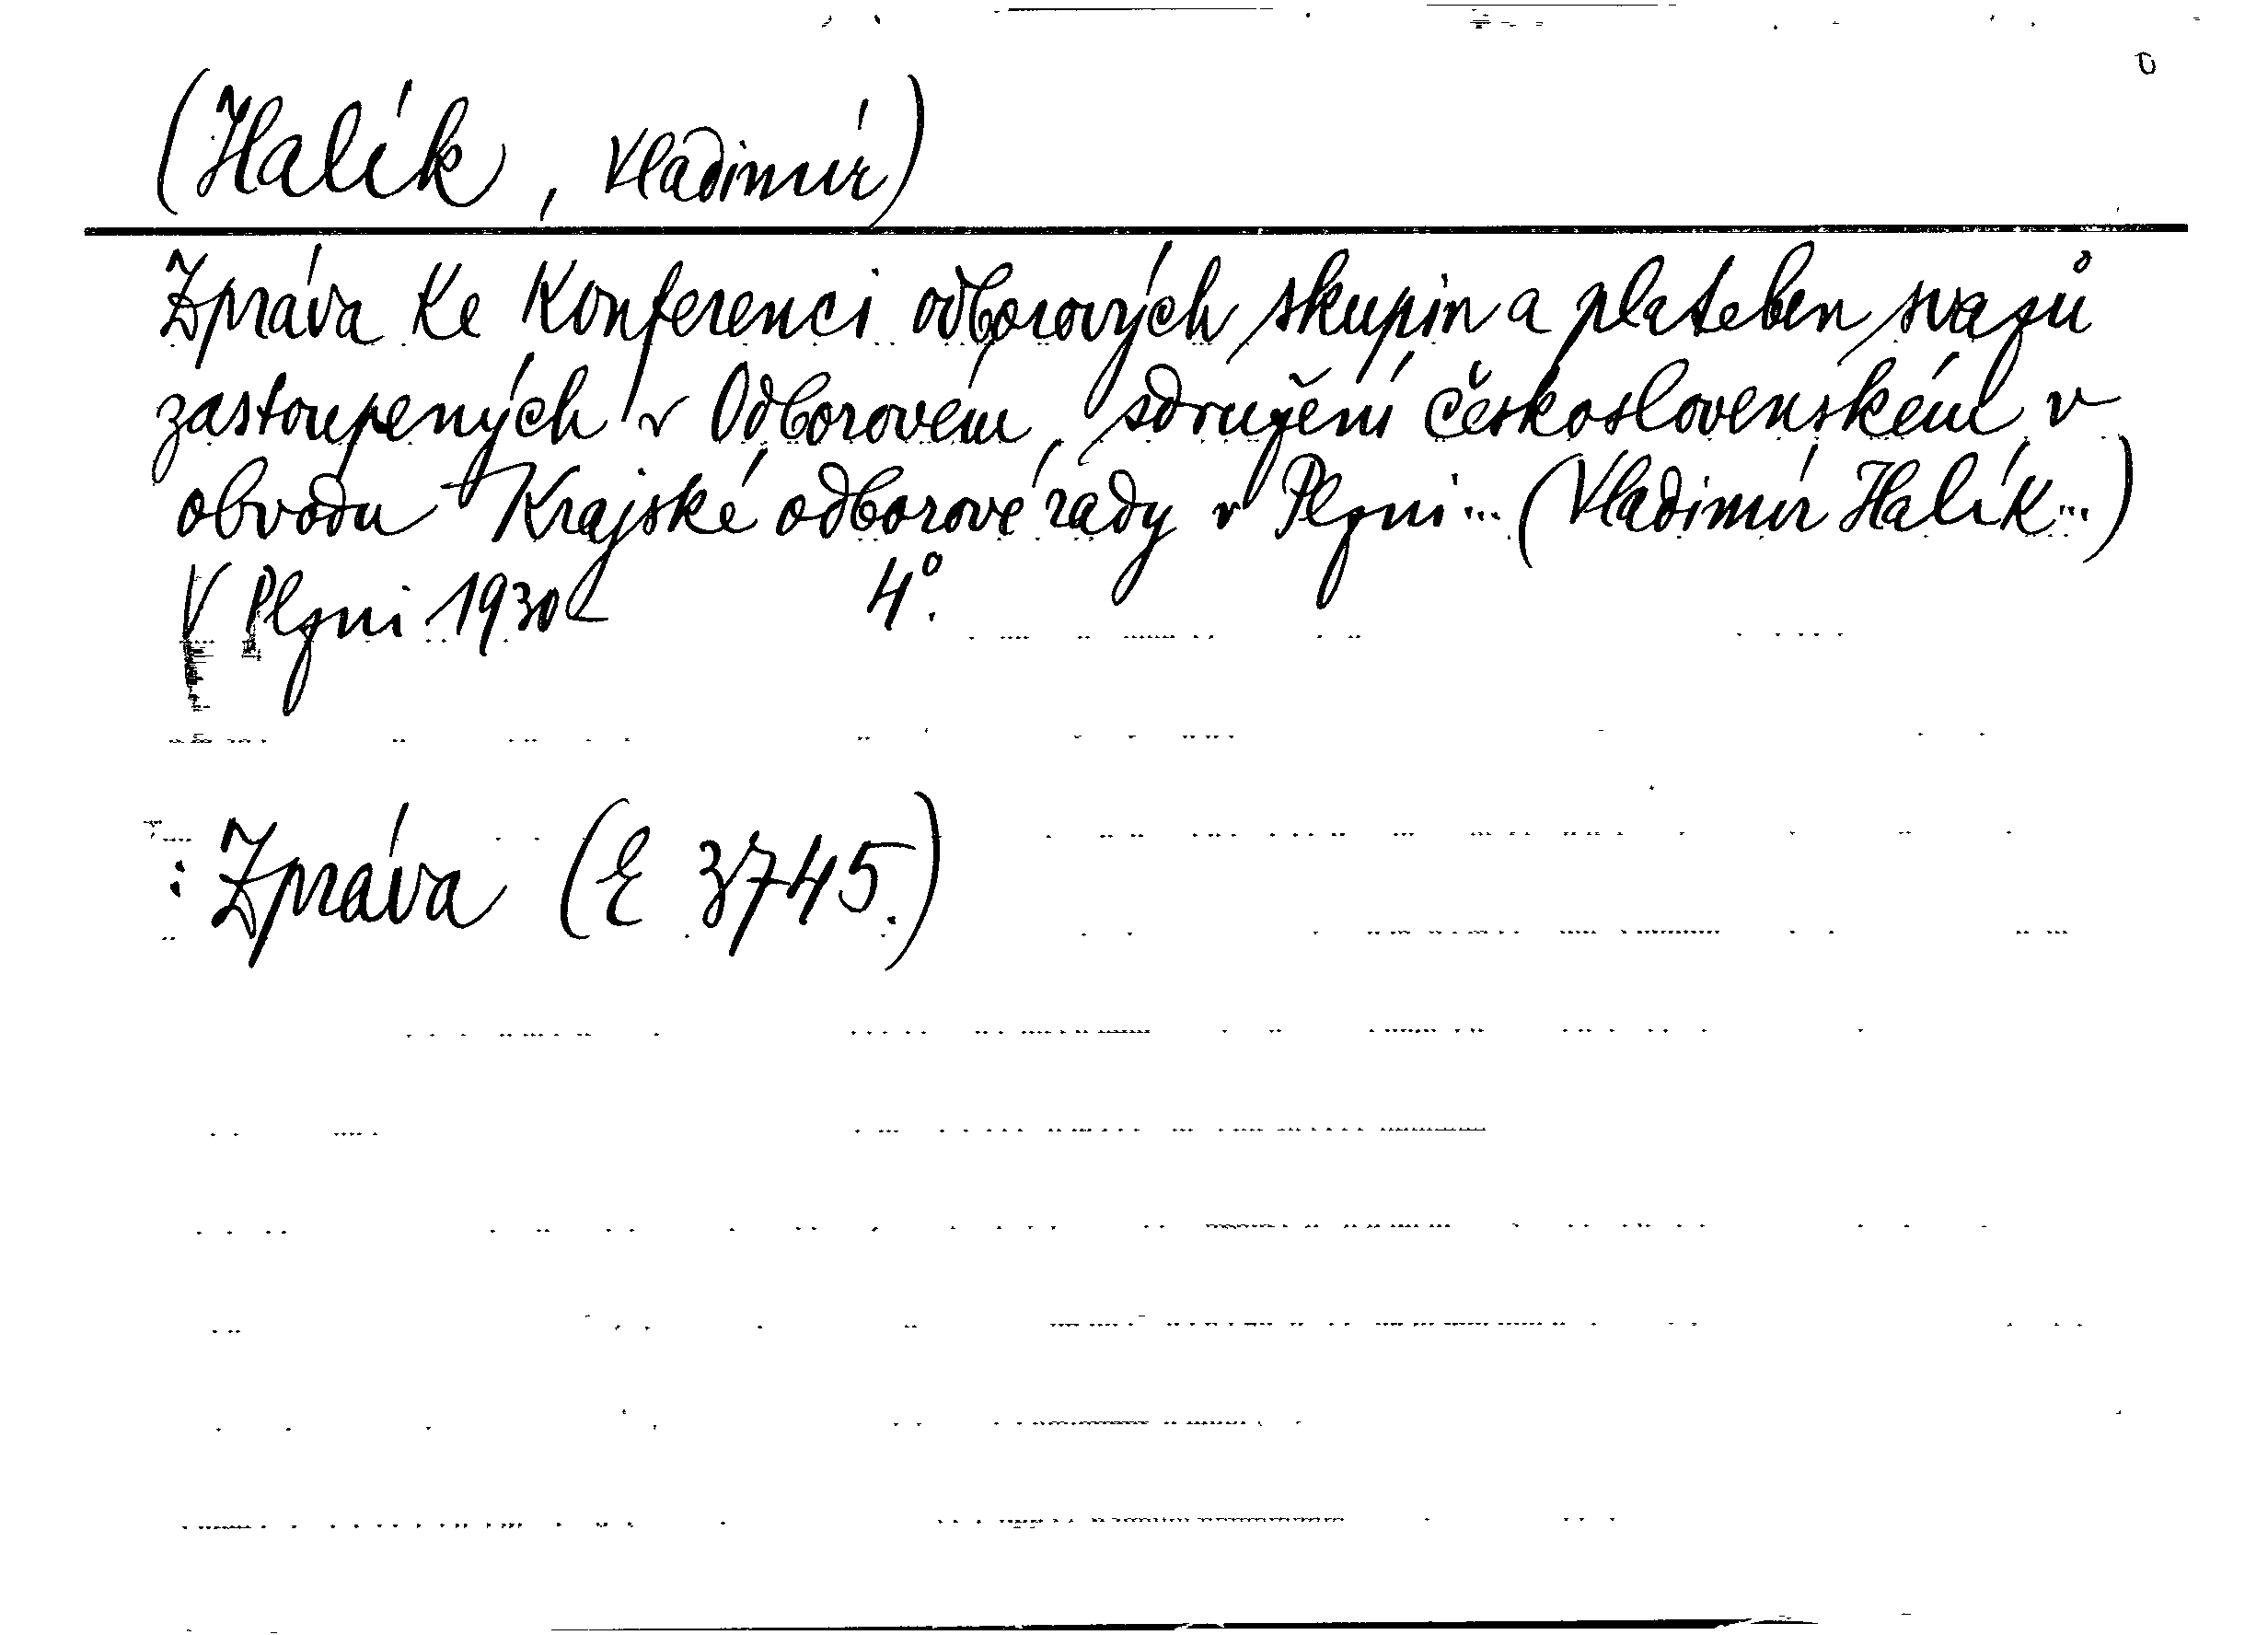 (Halík, Vladimír)
Zpráva ke konferenci odborových skupin a plateben svazů
zastoupených v Odborovém sdružení československém v
obvodu Krajské odborové rady v Plzni... (Vladimír Halík...)
V Plzni 1930 4°.
: Zpráva (E 3745.)